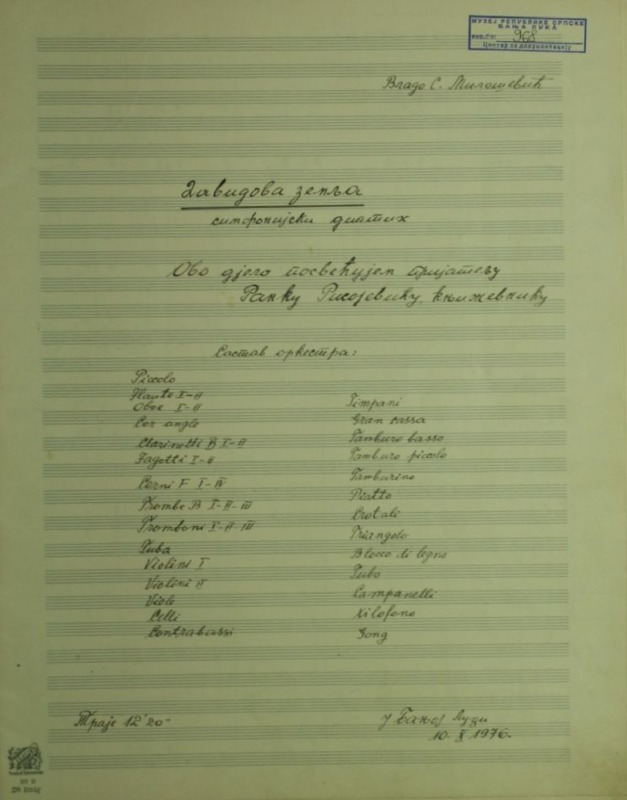 МУЗЕЈ РЕПУБЛИКЕ СРПСКЕ
БАЊА ЛУКА
968
Центар за документацију
Владо С. Милошевић
Завидова земља
симфонијски диптих
Ово дјело посвећујем пријатељу
Ранку Рисојевићу, књижевнику
Састав оркестра:
Piccolo
Flauto I-II
Oboe I-II
Cor angle
Clarinetti B I-II
Fagotti I-II
Corni F I-IV
Trombe B I-II-III
Tromboni I-II-III
Tuba
Violini I
Violini II
Viole
Celli
Contrabassi
Timpani
Gran cassa
Tamburo basso
Tamburo piccolo
Tamburino
Piatto
Crotali
Triangolo
Blocco di legno
Tubo
Campanelli
Xilofono
Gong
Траје 12'20"
У Бањој Луци
10. X 1976.